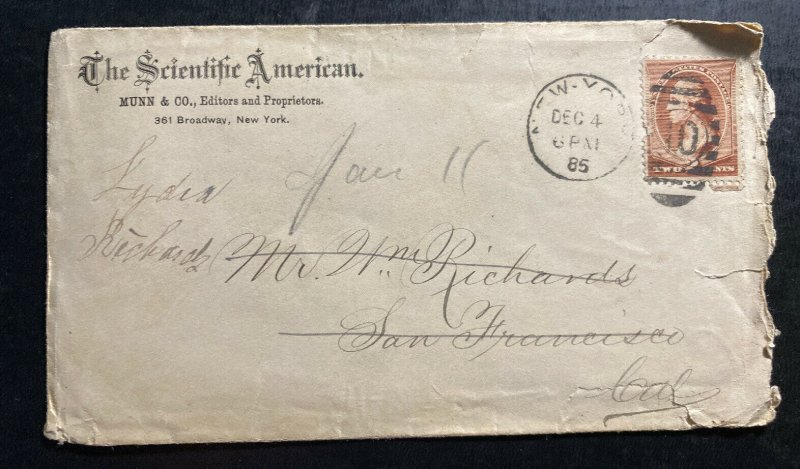 The Scientific American.
MUNN & CO., Editors and Proprietors.
361 Broadway, New York.
NEW-YORK
DEC 4
6 PM
85
10
TWO CENTS
Jan 11
Lydia
Richards
Mr. Wm Richards
San Francisco
Cal